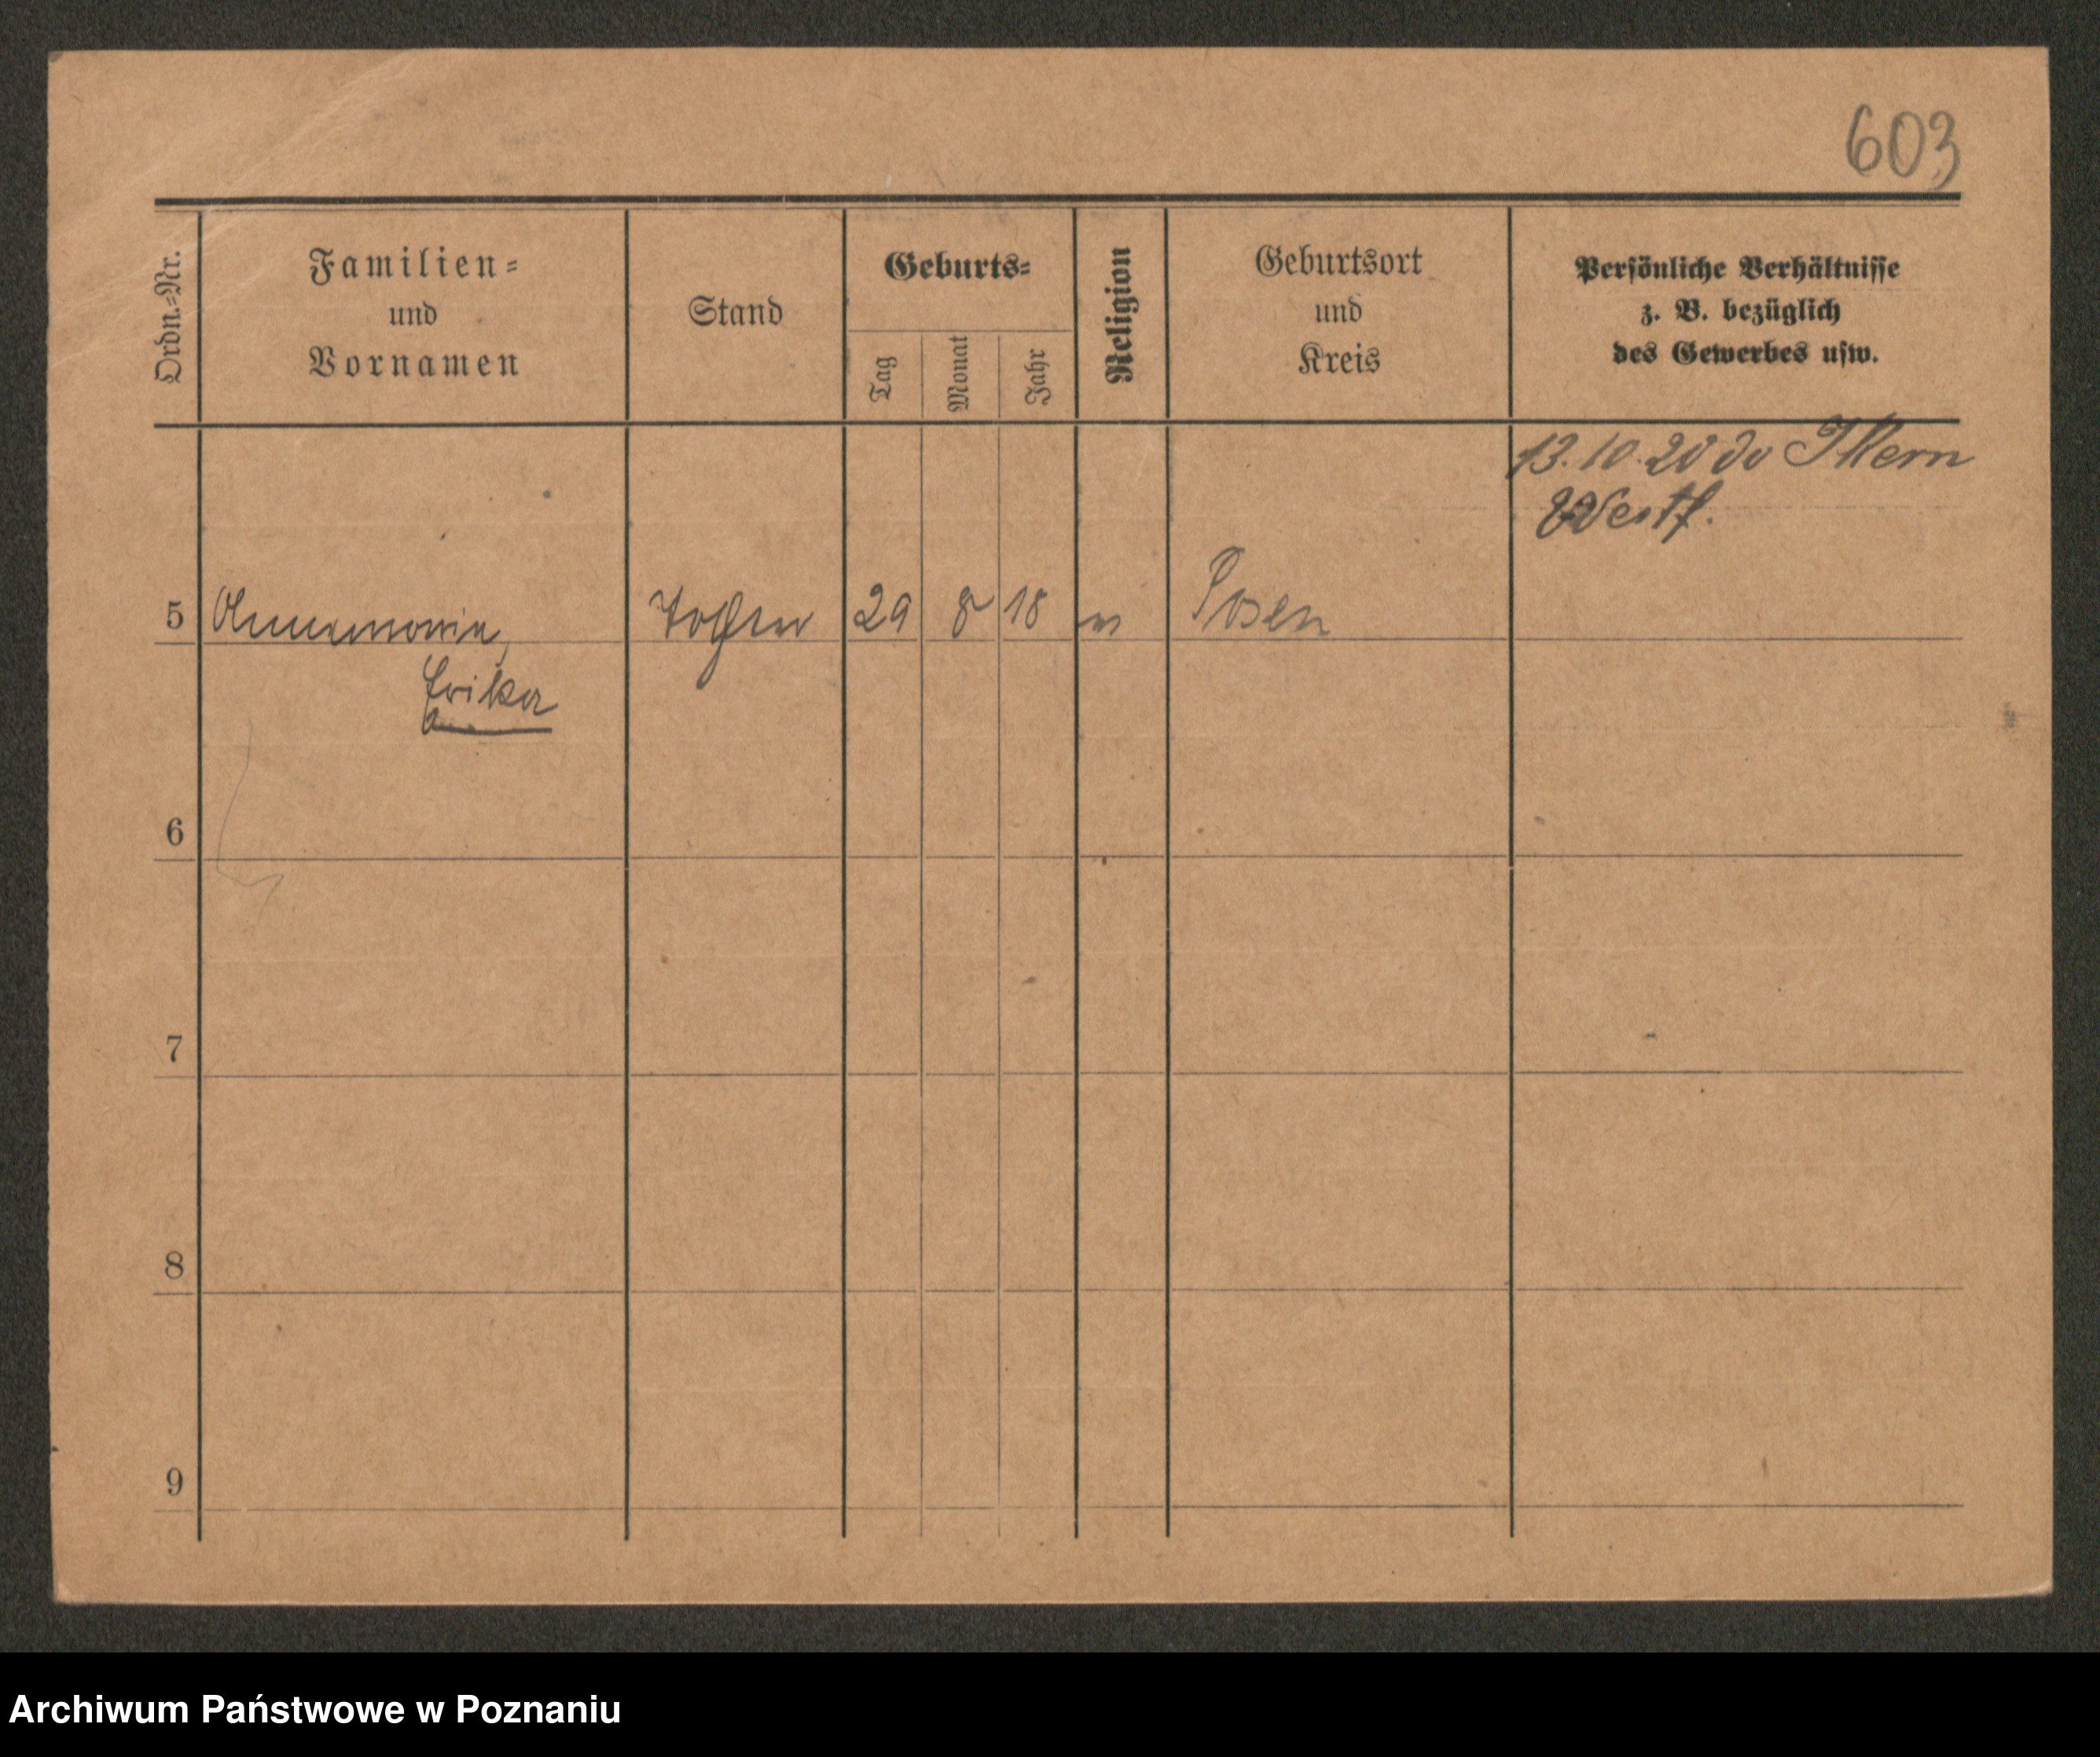 603
Ordn.-Nr.
Familien-
und
Vornamen
Stand
Geburts-
Tag
Monat
Jahr
Religion
Geburtsort
und
Kreis
Persönliche Verhältnisse
z. B. bezüglich
des Gewerbes usw.
13.10.20 do Ikern
Westf.
5 Annemarie, Tochter 29 8 18 Posen
Erika
6
7
8
9
Archiwum Państwowe w Poznaniu